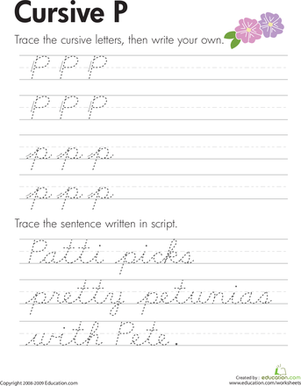 Cursive P
Trace the cursive letters, then write your own.
P P P
P P P
p p p
p p p
Trace the sentence written in script.
Patti picks
pretty petunias
with Pete.
Copyright 2008-2009 Education.com
Created by :
education.com
www.education.com/worksheets